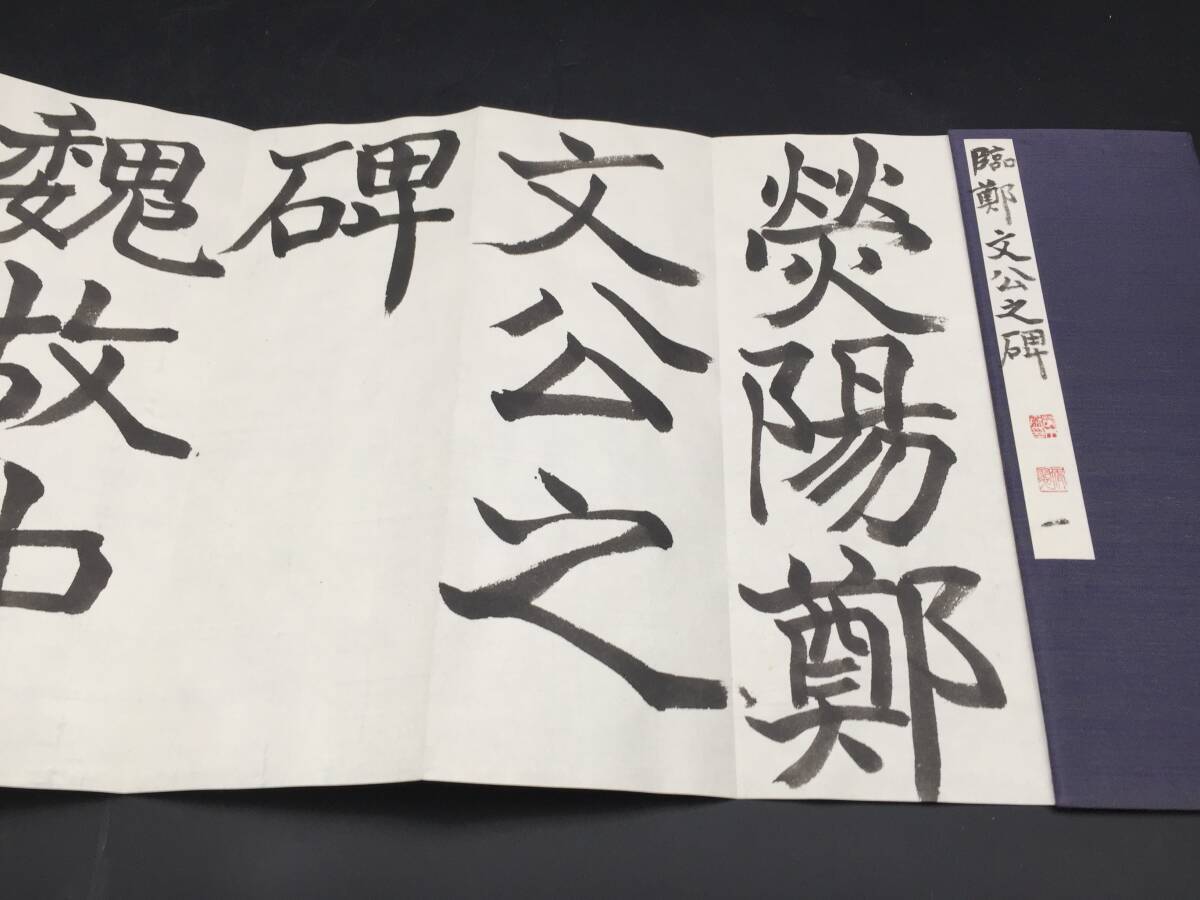 臨鄭文公之碑
一
熒陽鄭
文公之
碑
魏故中